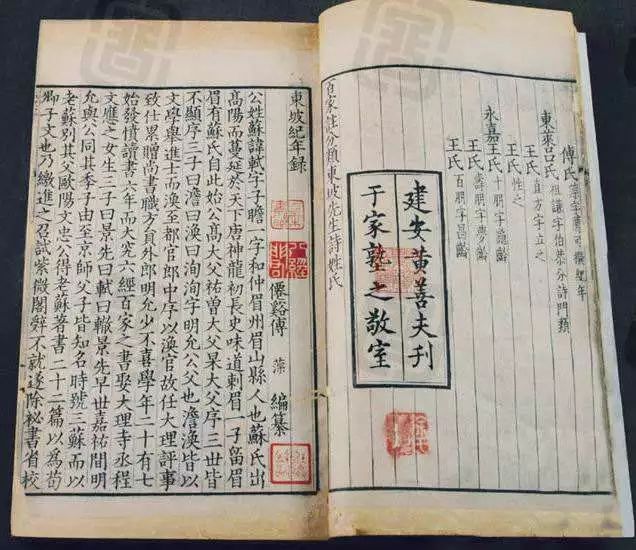 傅氏
東萊呂氏 祖謙字伯恭分詩門類
王氏 直方字立之
王氏 性之
永嘉王氏 十朋字龜齡
王氏 壽朋字夢齡
王氏 百朋字昌齡
建安黃善夫刊
于家塾之敬室
百家註分類東坡先生詩姓氏
東坡紀年録
僊谿傅 藻 編纂
公姓蘇諱軾字子瞻一字和仲眉州眉山縣人也蘇氏出
高陽而蔓延於天下唐神龍初長史味道刺眉一子留眉
眉有蘇氏自此始公高大父祐曾大父杲大父序三世皆
不顯序三子曰澹曰渙曰洵洵字明允公父也澹渙皆以
文學舉進士而渙至都官郎中序以渙官故任大理評事
致仕累贈尚書職方員外郎明允少不喜學年二十有七
始發憤讀書六年而大究六經百家之書娶大理寺丞程
文應之女生三子曰景先曰軾曰轍景先早世嘉祐間明
允與公同其季子由至京師父子皆知名時號三蘇而以
老蘇別其父歐陽文忠公得老蘇著書二十二篇以為荀
卿子文也乃繳進之召試紫微閣辭不就遂除祕書省校